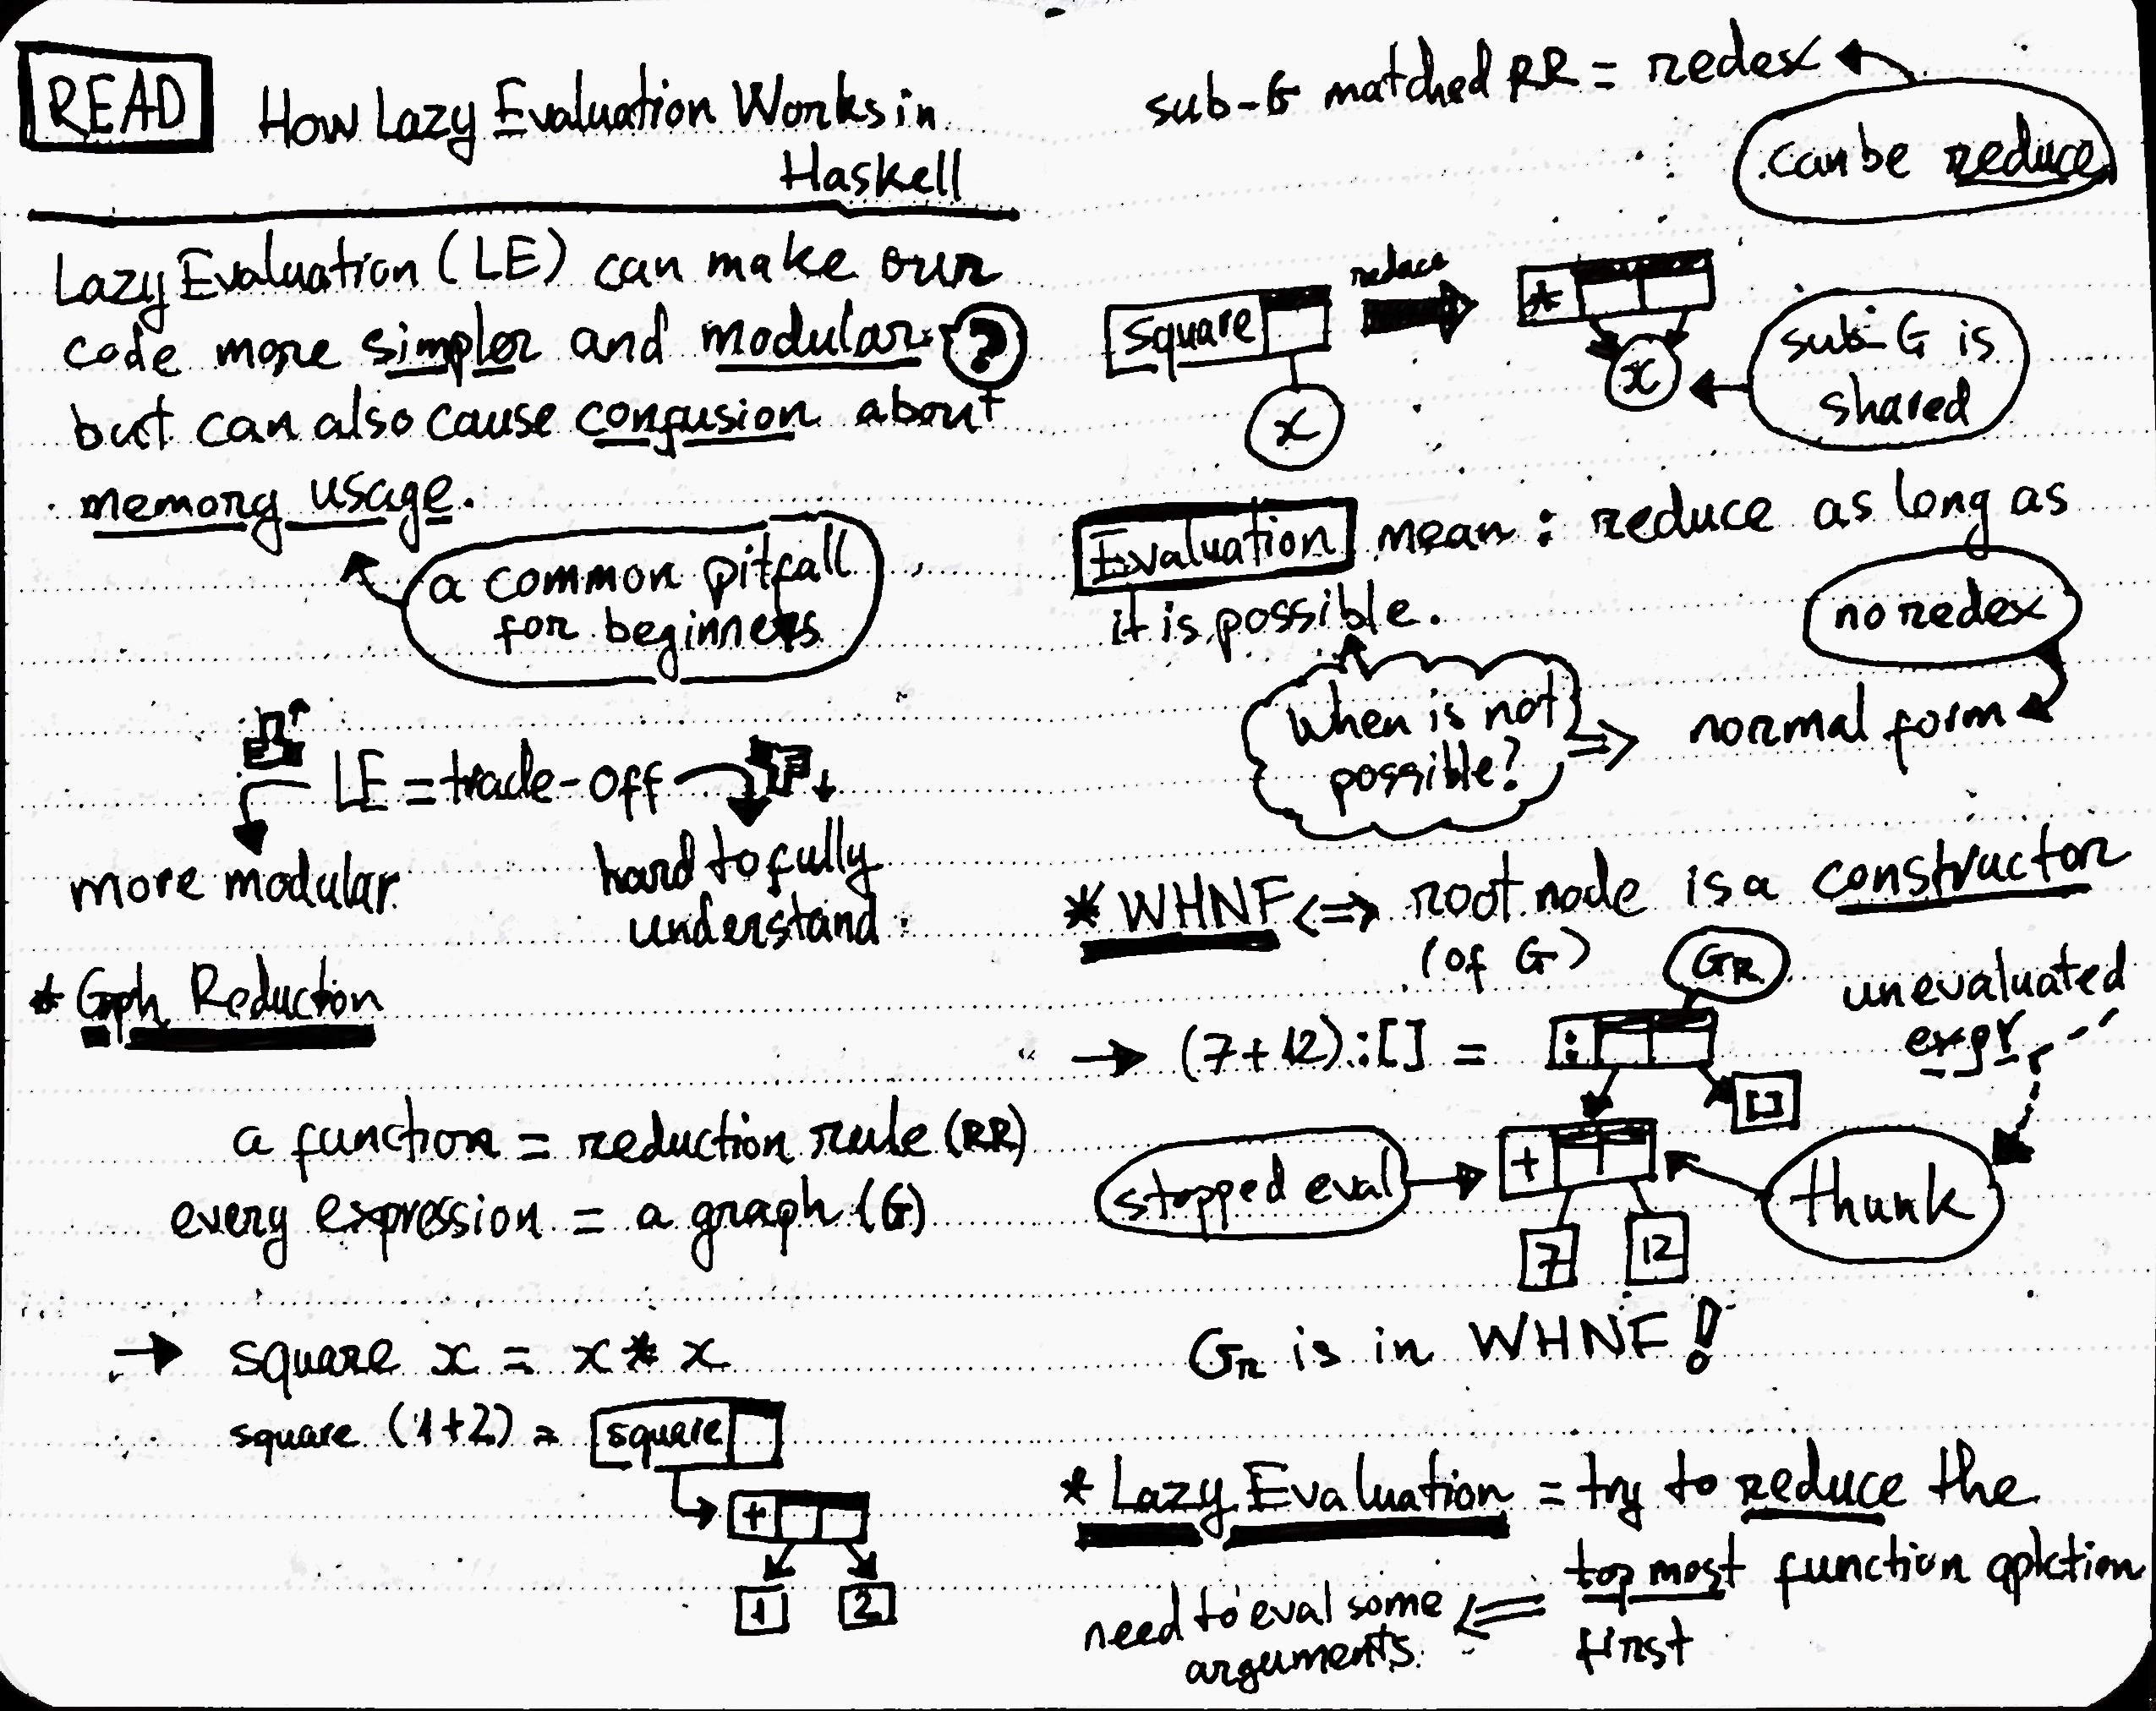 READ
How Lazy Evaluation Works in
Haskell
Lazy Evaluation (LE) can make our
code more simpler and modular. ?
but can also cause confusion about
memory usage.
a common pitfall
for beginners
LE = trade-off
more modular.
hard to fully
understand.
* Gph Reduction
a function = reduction rule (RR)
every expression = a graph (G)
→ square x = x * x
square (1+2) = square
+
1 2
sub-G matched RR = redex
can be reduce
square reduce *
x x
sub-G is
shared
Evaluation mean : reduce as long as
it is possible.
no redex
When is not
possible? => normal form
* WHNF <=> root node is a constructor
(of G)
GR
unevaluated
expr
→ (7+12):[] = :
[]
stopped eval + thunk
7 12
GR is in WHNF!
* Lazy Evaluation = try to reduce the
top most function aplction
first
<= need to eval some
arguments.